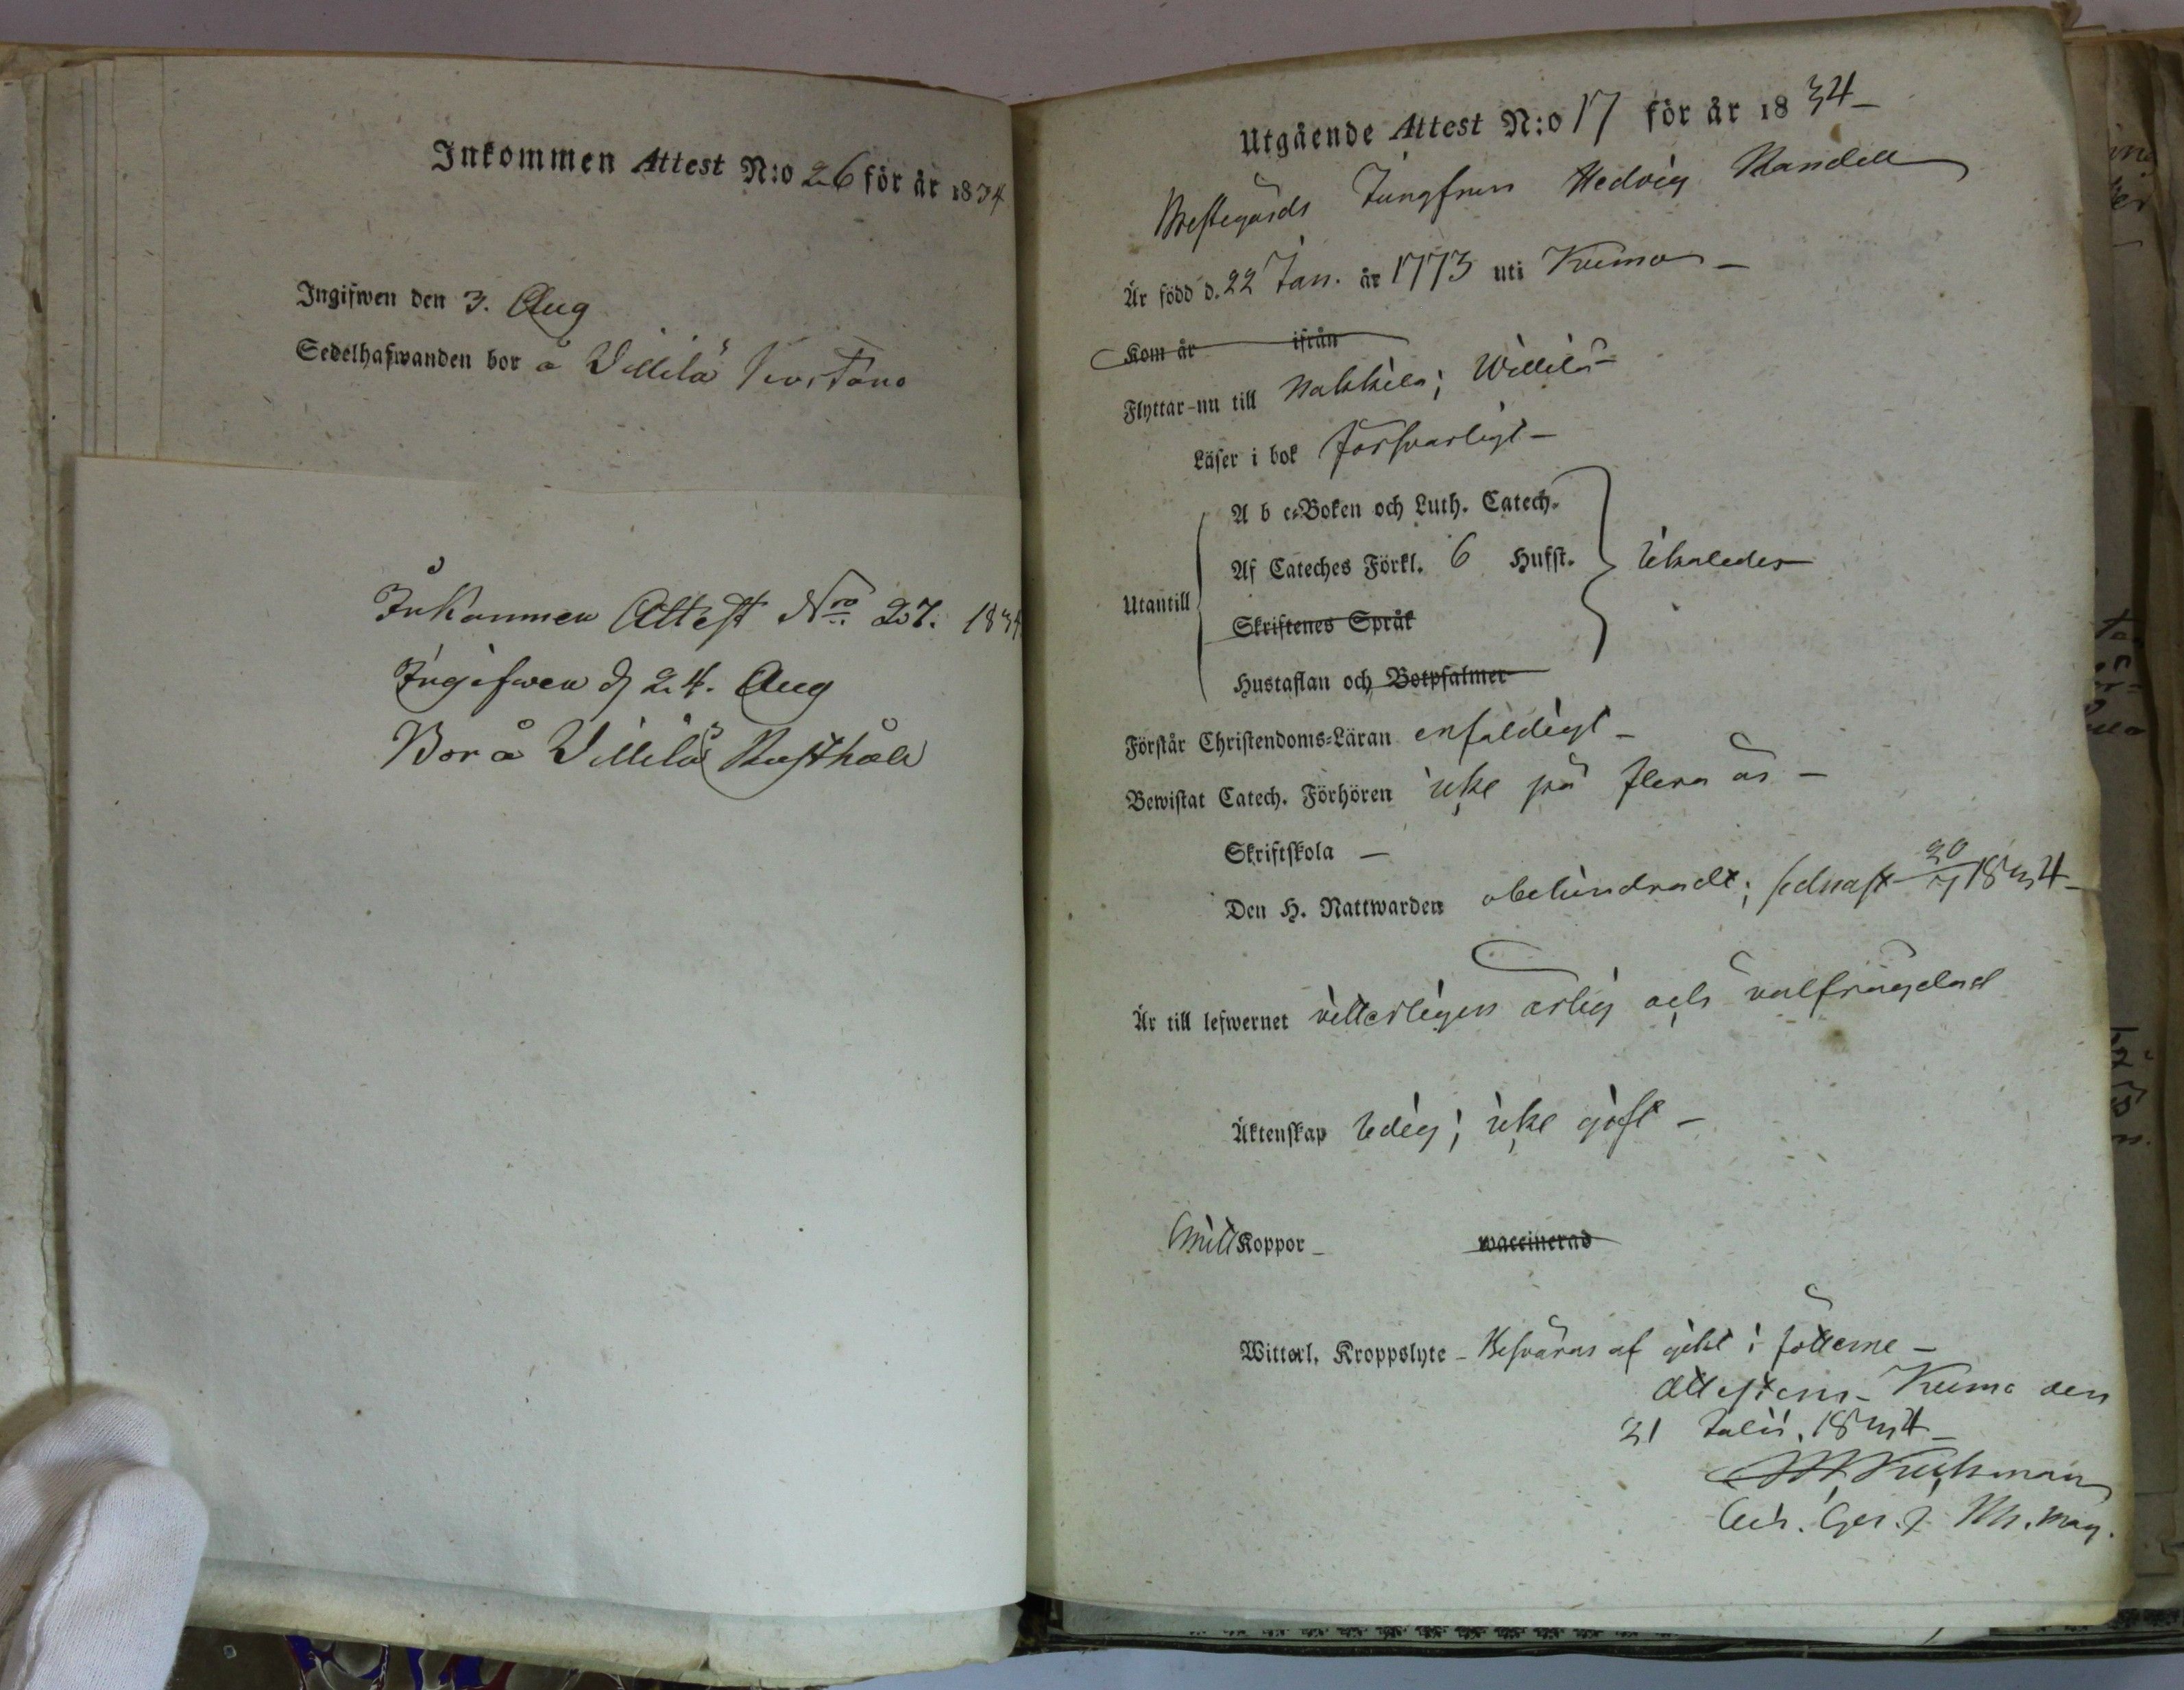 Inkommen Attest N:o 26 för år 1834
Ingifwen den 3. Aug
Sedelhafwanden bor å Villilä
Inkommen Attest Nro 27. 1834
Ingifwen d 24. Aug
Bor å Villilä Rusthåll
Utgående Attest N:o 17 för år 1834
Prestegårds Jungfrun Hedvig Randell
Är född d. 22 Jan. år 1773 uti Kumo
Kom år ifrån
Flyttar nu till Nakkila; Willilä
Läser i bok försvarligt
A b c-Boken och Luth. Catech.
Af Cateches Förkl. 6 Hufst. likaledes
Utantill
Skriftenes Språk
Hustaflan och Botpsalmer
Förstår Christendoms-Läran enfaldigt
Bewistat Catech. Förhören icke på flera år
Skriftskola —
Den H. Nattwarden obehindradt; sednast 20/7 1834
Är till lefwernet vitterligen ärlig och välfrägdad
Äktenskap ledig; icke gift
haft Koppor waccinerad
Witterl. Kroppslyte Besväras af gikt i fötterne
Attesterar Kumo den
21 Julii 1834